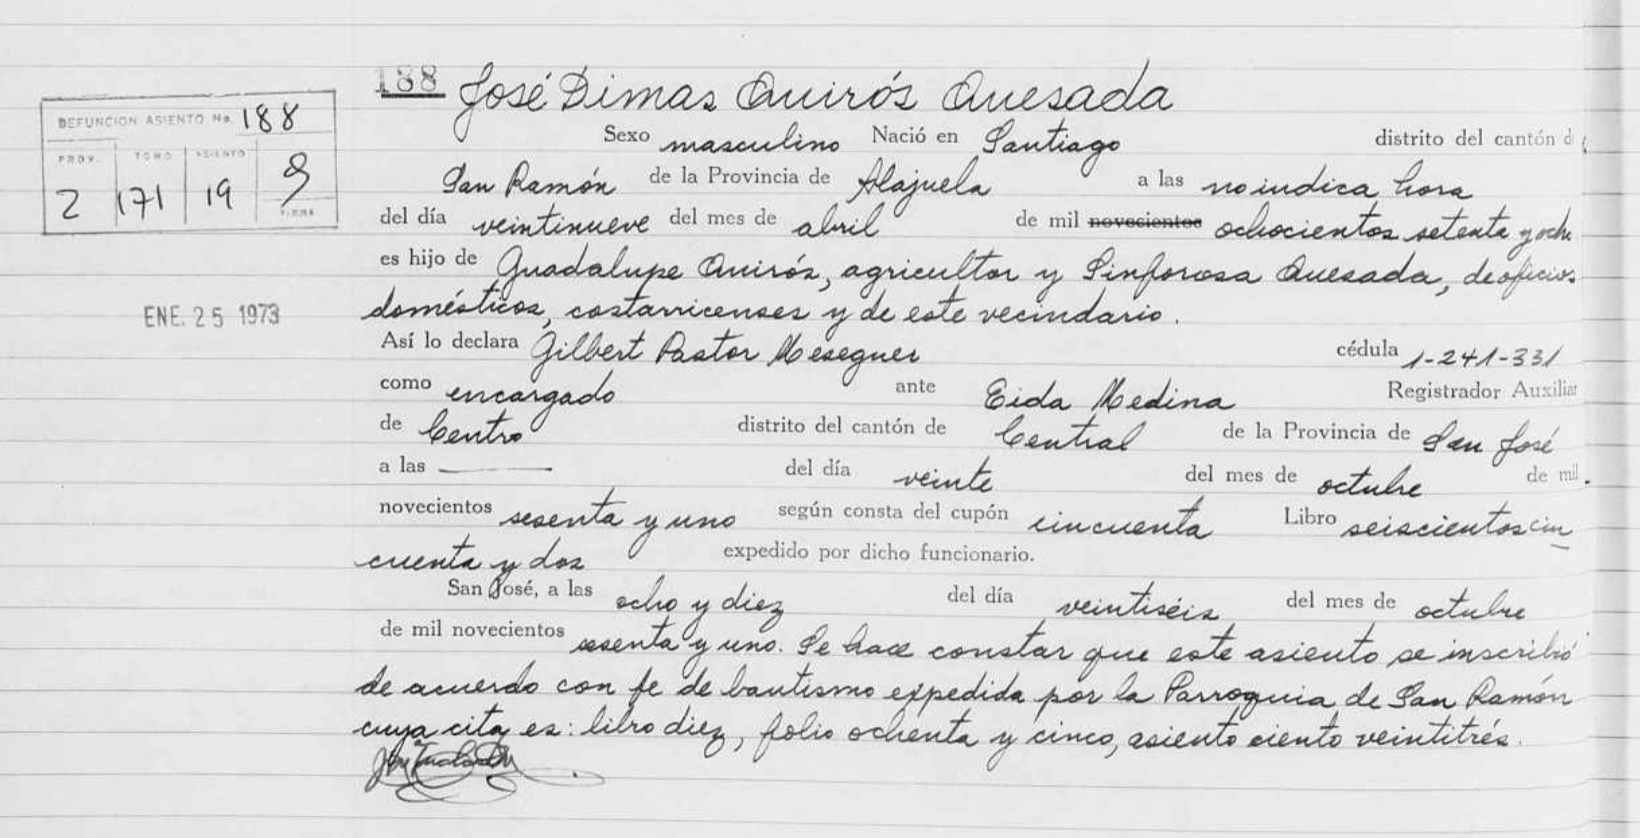 188 José Dimas Quirós Quesada
DEFUNCION ASIENTO No. 188
PROV. TOMO ASIENTO
2 171 19
FIRMA
Sexo masculino Nació en Santiago distrito del cantón de
San Ramón de la Provincia de Alajuela a las no indica hora
del día veintinueve del mes de abril de mil novecientos ochocientos setenta y ocho
es hijo de Guadalupe Quirós, agricultor y Sinforosa Quesada, de oficios
ENE. 25 1973
domésticos, costarricenses y de este vecindario.
Así lo declara Gilbert Pastor Meseguer cédula 1-241-331
como encargado ante Eida Medina Registrador Auxiliar
de Centro distrito del cantón de Central de la Provincia de San José
a las ——— del día veinte del mes de octubre de mil
novecientos sesenta y uno según consta del cupón cincuenta Libro seiscientos cin
cuenta y dos expedido por dicho funcionario.
San José, a las ocho y diez del día veintiséis del mes de octubre
de mil novecientos sesenta y uno. Se hace constar que este asiento se inscribió
de acuerdo con fe de bautismo expedida por la Parroquia de San Ramón
cuya cita es: libro diez, folio ochenta y cinco, asiento ciento veintitrés.